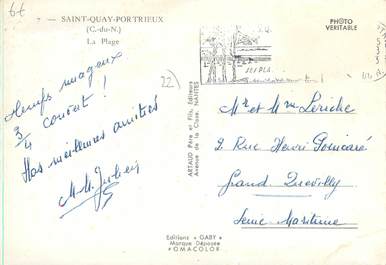 7. — SAINT-QUAY-PORTRIEUX
(C.-du-N.)
La Plage
PHOTO
VERITABLE
Temps nuageux
3/4 couvert !
Nos meilleures amitiés
22)
ARTAUD Père et Fils, Editeurs
Avenue de la Close, NANTES
Mr et Mme Leriche
2 Rue Henri Poincaré
Grand Quevilly
Seine Maritime
Editions « GABY »
Marque Déposée
"OMACOLOR"